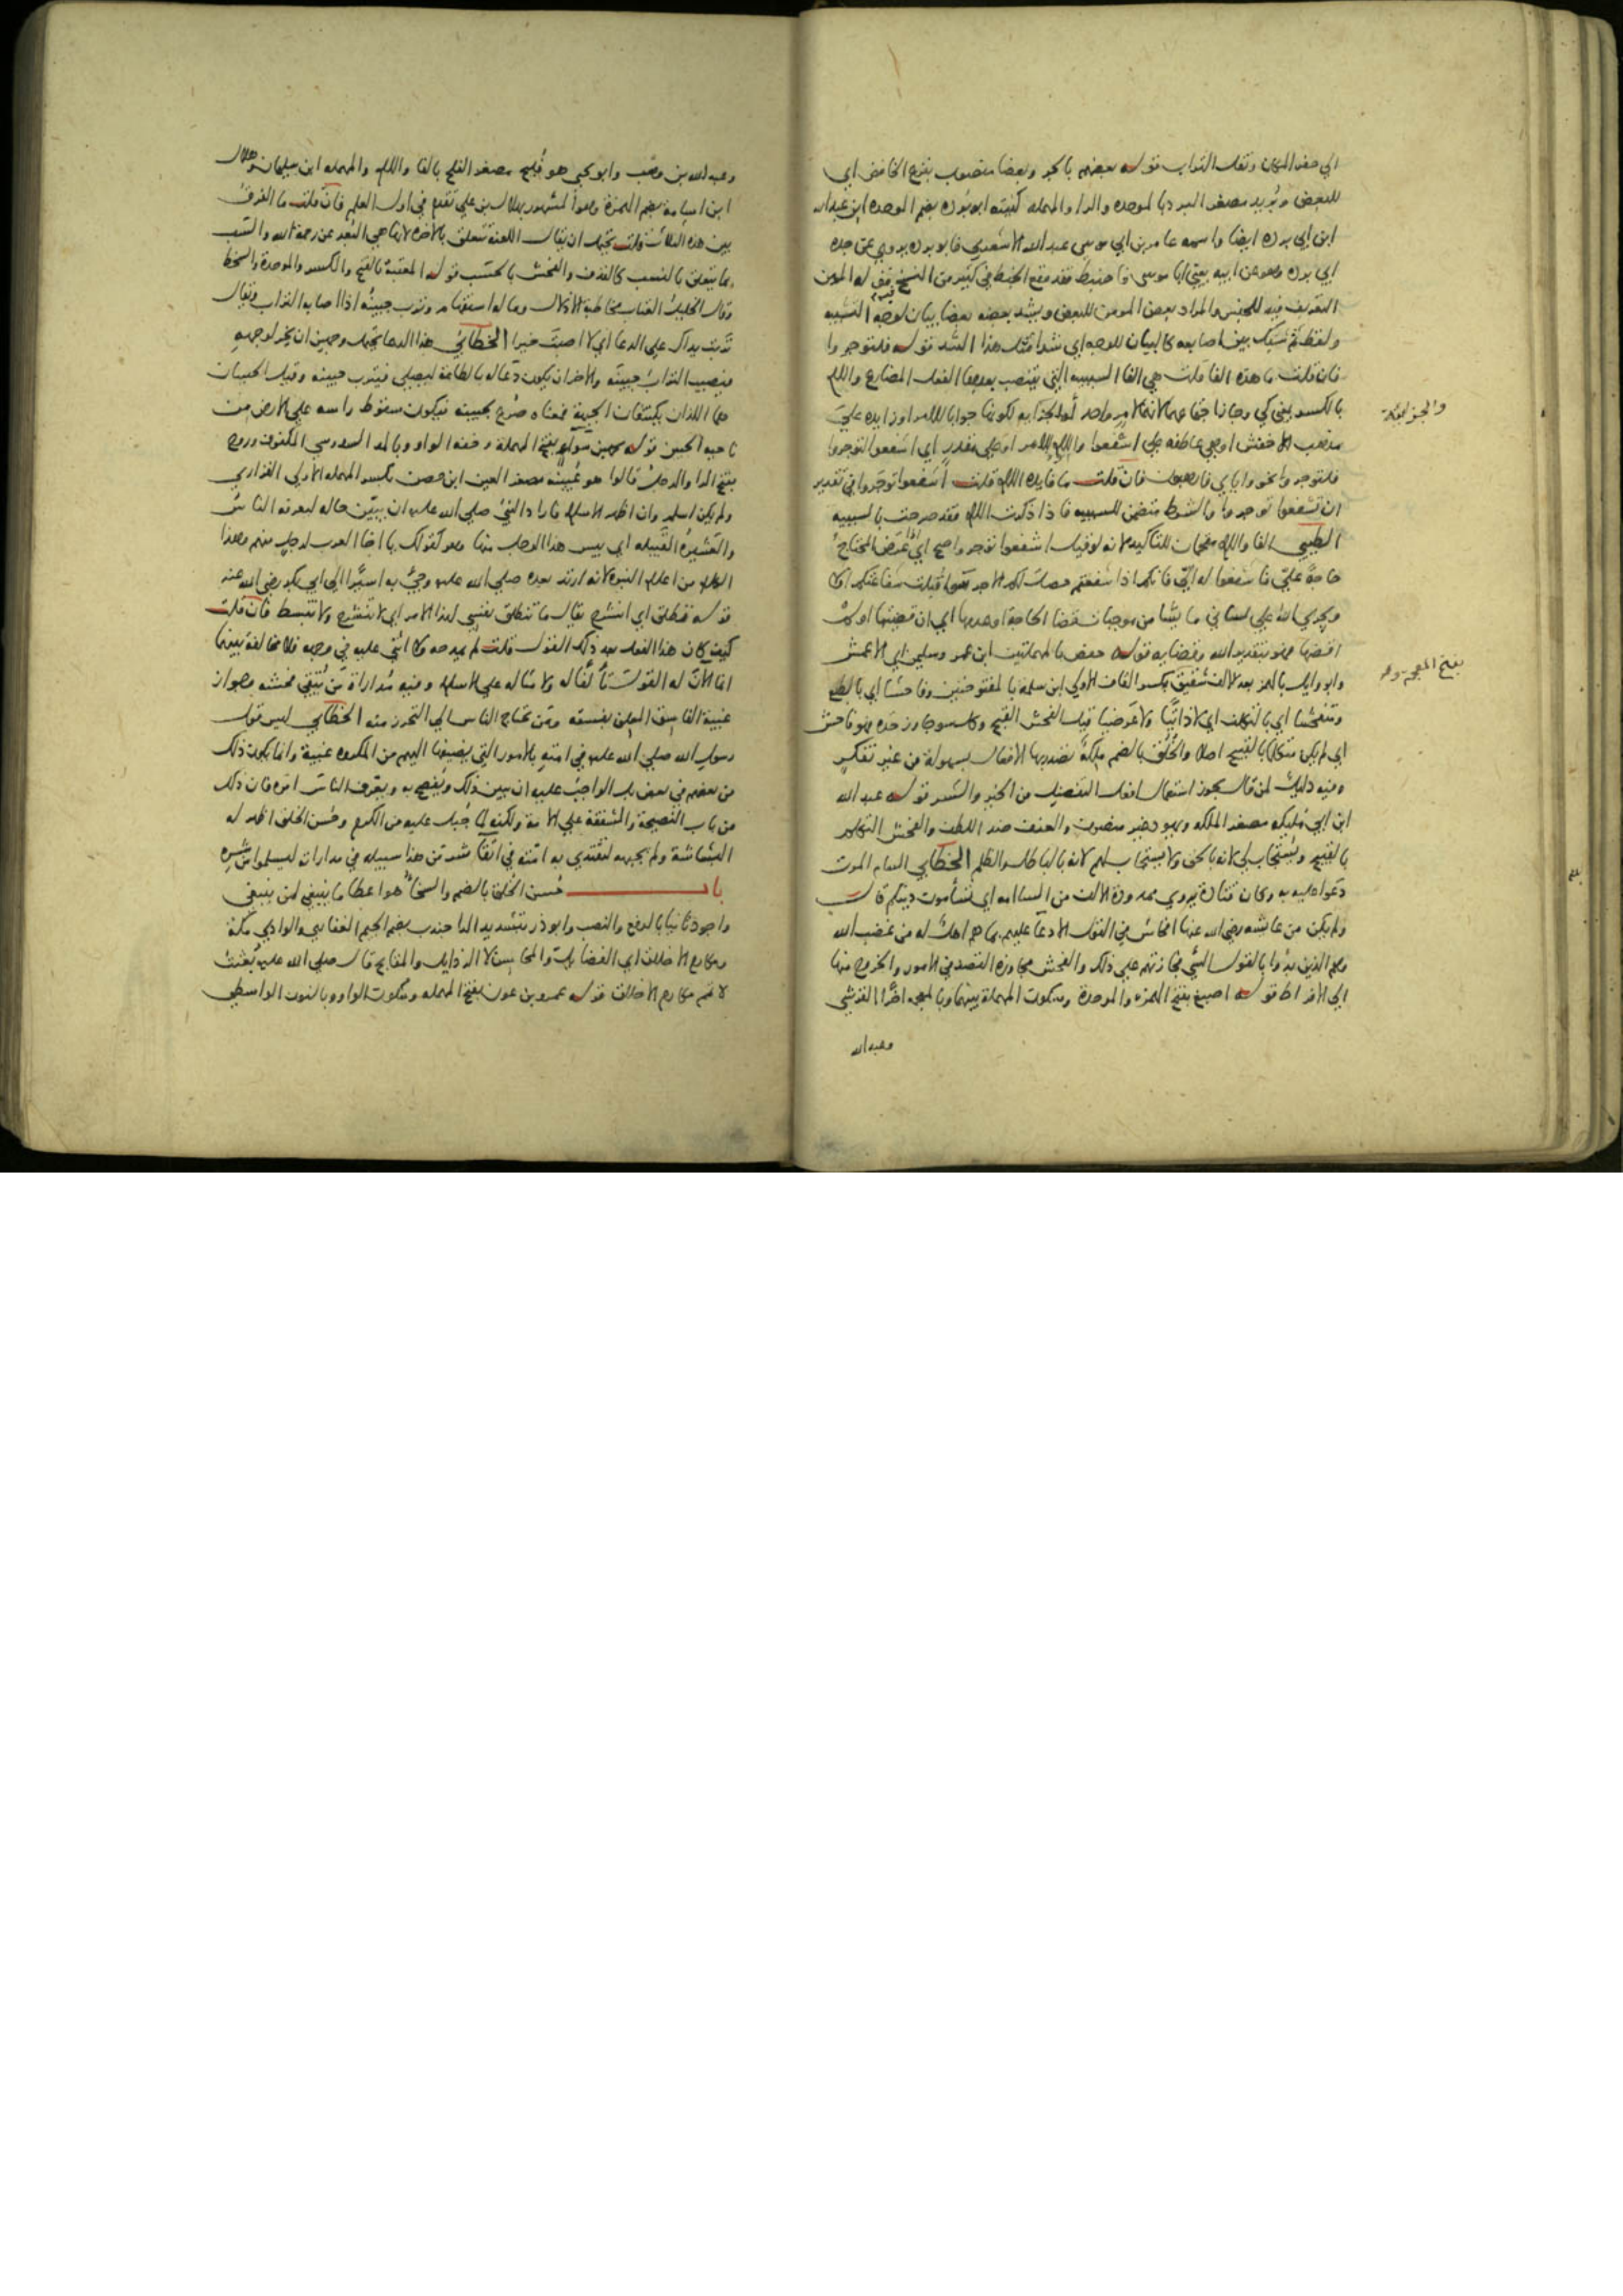 الي حفر المكان ونقل التراب قوله بعضهم بالجر وبعضا منصوب بنزع الخافض اي
للبعض وبُريد مصغر البرد بالموحده والرا والمهمله كنيته ابو بُرده بضم الموحده ابن عبد الله
ابن ابي برده ايضا واسمه عامر بن ابي موسى عبد الله الاشعري فابو برده يروي عن جده
ابي برده وهو عن ابيه يعني ابا موسى فاحفظ فقد وقع الخبط في كثير من النسخ قوله المومن
التعريف فيه للجنس والمراد بعض المومن للبعض ويشد بعضه بعضا بيان لوجه التشبيه
ولفظ ثم شبك بين اصابعه كالبيان للوجه اي شدا مثل هذا الشد قوله فلتوجروا
فان قلت ما هذه الفا قلت هي الفا السببيه التي ينتصب بعدها الفعل المضارع واللام
بالكسر بمعنى كي وجاز اجتماعهما لانهما لامر واحد او الجزائيه لكونها جوابا للامر او زايده علي
والجزائية
مذهب الاخفش او هي عاطفه على اشفعوا واللام للامر او على مقدر اي اشفعوا لتوجروا
فلتوجروا نحو واياي فارهبون فان قلت ما فايده اللام قلت اشفعوا توجروا في تقدير
ان تشفعوا توجروا والشرط متضمن للسببيه فاذا ذكرت اللام فقد صرحت بالسببيه
الطيبي الفا واللام مقحمان للتاكيد لانه لو قيل اشفعوا توجروا صح اي اذا عرض المحتاج
حاجة علي فاشفعوا له الي فانكم اذا شفعتم حصل لكم الاجر سوا قبلت شفاعتكم ام لا
ويجري الله علي لساني ما يشا من موجبات قضا الحاجة او عدمها اي ان قضيتها او لم
اقضها فهو بتقدير الله وقضايه قوله حفص بالمهملتين ابن عمر وسليمن اي الاعمش
وابو وايل بالهمز بعد الالف شقيق بكسر القاف الاولى ابن سلمة بالمفتوحتين وفاحشا اي بالطبع
بفتح المعجمه
ومتفحشا اي بالتكلف اي لا ذاتيا ولا عرضيا قيل الفحش القبح وكل سوء جاوز حده فهو فاحش
اي لم يكن متكلما بالقبيح اصلا والخلق بالضم ملكة تصدر بها الافعال بسهولة من غير تفكر
وفيه دليل لمن قال بجوز استعمال افعل التفضيل من الخير والشر قوله عبد الله
ابن ابي مليكه مصغر الملكه ويهود غير منصرف والعنف ضد اللطف والفحش التكلم
بالقبيح ويستجاب لي لانه بالحق ولا يستجاب لهم لانه بالباطل والظلم الخطابي السام الموت
دعوا عليه به وكان قتادة يرويه ممدودة الالف من السامه اي تسامون دينكم قال
ولم يكن من عايشه رضي الله عنها افحاش في القول الا دعا عليهم بما هم اهل له من غضب الله
وهم الذين بدوا بالقول السيّ فجازتهم علي ذلك والفحش مجاوزة القصد في الامور والخروج منها
الي الافراط قوله اصبغ بفتح الهمزه والموحدة وسكون المهملة بينهما وبالمعجمه اخرا القرشي
وعبد الله
وعبد الله بن وهب وابو يحيى هو فُليح مصغر الفلح بالفا واللام والمهمله ابن سليمان وهلال
ابن اسامة بضم الهمزة وهو المشهور بهلال بن علي تقدم في اول العلم فان قلت ما الفرق
بين هذه الثلاث قلت يحتمل ان يقال اللعنة تتعلق بالاخره لانها هي البُعد عن رحمة الله والسب
بما يتعلق بالنسب كالقذف والفحش بالحسب قوله المعتبة بالفتح والكسر والموحدة والسخط
وقال الخليل العتاب مخاطبة الادلال وما له استفهام وترب جبينه اذا اصابه التراب ويقال
تربت يداك على الدعا اي لا اصبت خيرا الخطابي هذا الدعا يحتمل وجهين ان يخر لوجهه
فيصيب التراب جبينه والاخر ان يكون دعا له بالطاعة ليصلي فيترب جبينه وقيل الجبينان
هما اللذان يكتنفان الجبهة فمعناه صُرع لجبينه فيكون سقوط راسه علي الارض من
ناحية الجبين قوله محمد بن سوا بفتح المهملة وخفة الواو وبالمد السدوسي المكفوف وروح
بفتح الرا والرجل قالوا هو عُيينه مصغر العين ابن حصن بكسر المهمله الاولى الفزاري
ولم يكن اسلم وان اظهر الاسلام فاراد النبي صلى الله عليه ان يبين حاله ليعرفه الناس
والعشيرة القبيله اي بيس هذا الرجل منها وهو كقولك يا اخا العرب لرجل منهم وهذا
الكلام من اعلام النبوة لانه ارتد بعده صلي الله عليه وجيء به اسيرا الي ابي بكر رضي الله عنه
قوله تطلق اي انشرح يقال ما تنطلق نفسي لهذا الامر اي لا تنشرح ولا تنبسط فان قلت
كيف كان هذا الفعل بعد ذلك القول قلت لم يمدحه ولا اثني عليه في وجهه فلا مخالفة بينهما
انما الان له القول تالفا له ولامثاله علي الاسلام وفيه مُداراة من يُتقي فحشه وجواز
غيبة الفاسق المعلن بفسقه ومن يحتاج الناس الي التحرز منه الخطابي ليس قول
رسول الله صلي الله عليه في امته بالامور التي يضيفها اليهم من المكروه غيبة وانما يكون ذلك
من بعضهم في بعض بل الواجب عليه ان يبين ذلك ويُفصح به ويعرف الناس امره فان ذلك
من باب النصيحة والشفقة علي الامة ولكنه لما جُبل عليه من الكرم وحُسن الخلق اظهر له
البشاشة ولم يجبهه لتقتدي به امته في اتقا شر من هذا سبيله في مداراته ليسلموا من شره
باب حُسن الخلق بالضم والسخا هو اعطا ما ينبغي لمن ينبغي
واجود ثانيا بالرفع والنصب وابو ذر بتشديد الرا جندب بضم الجيم الغفاري والوادي مكة
ومكارم الاخلاق اي الفضايل والمحاسن لا الرذايل والمقابح قال صلي الله عليه بُعثت
لاتمم مكارم الاخلاق قوله عمرو بن عون بفتح المهمله وسكون الواو وبالنون الواسطي